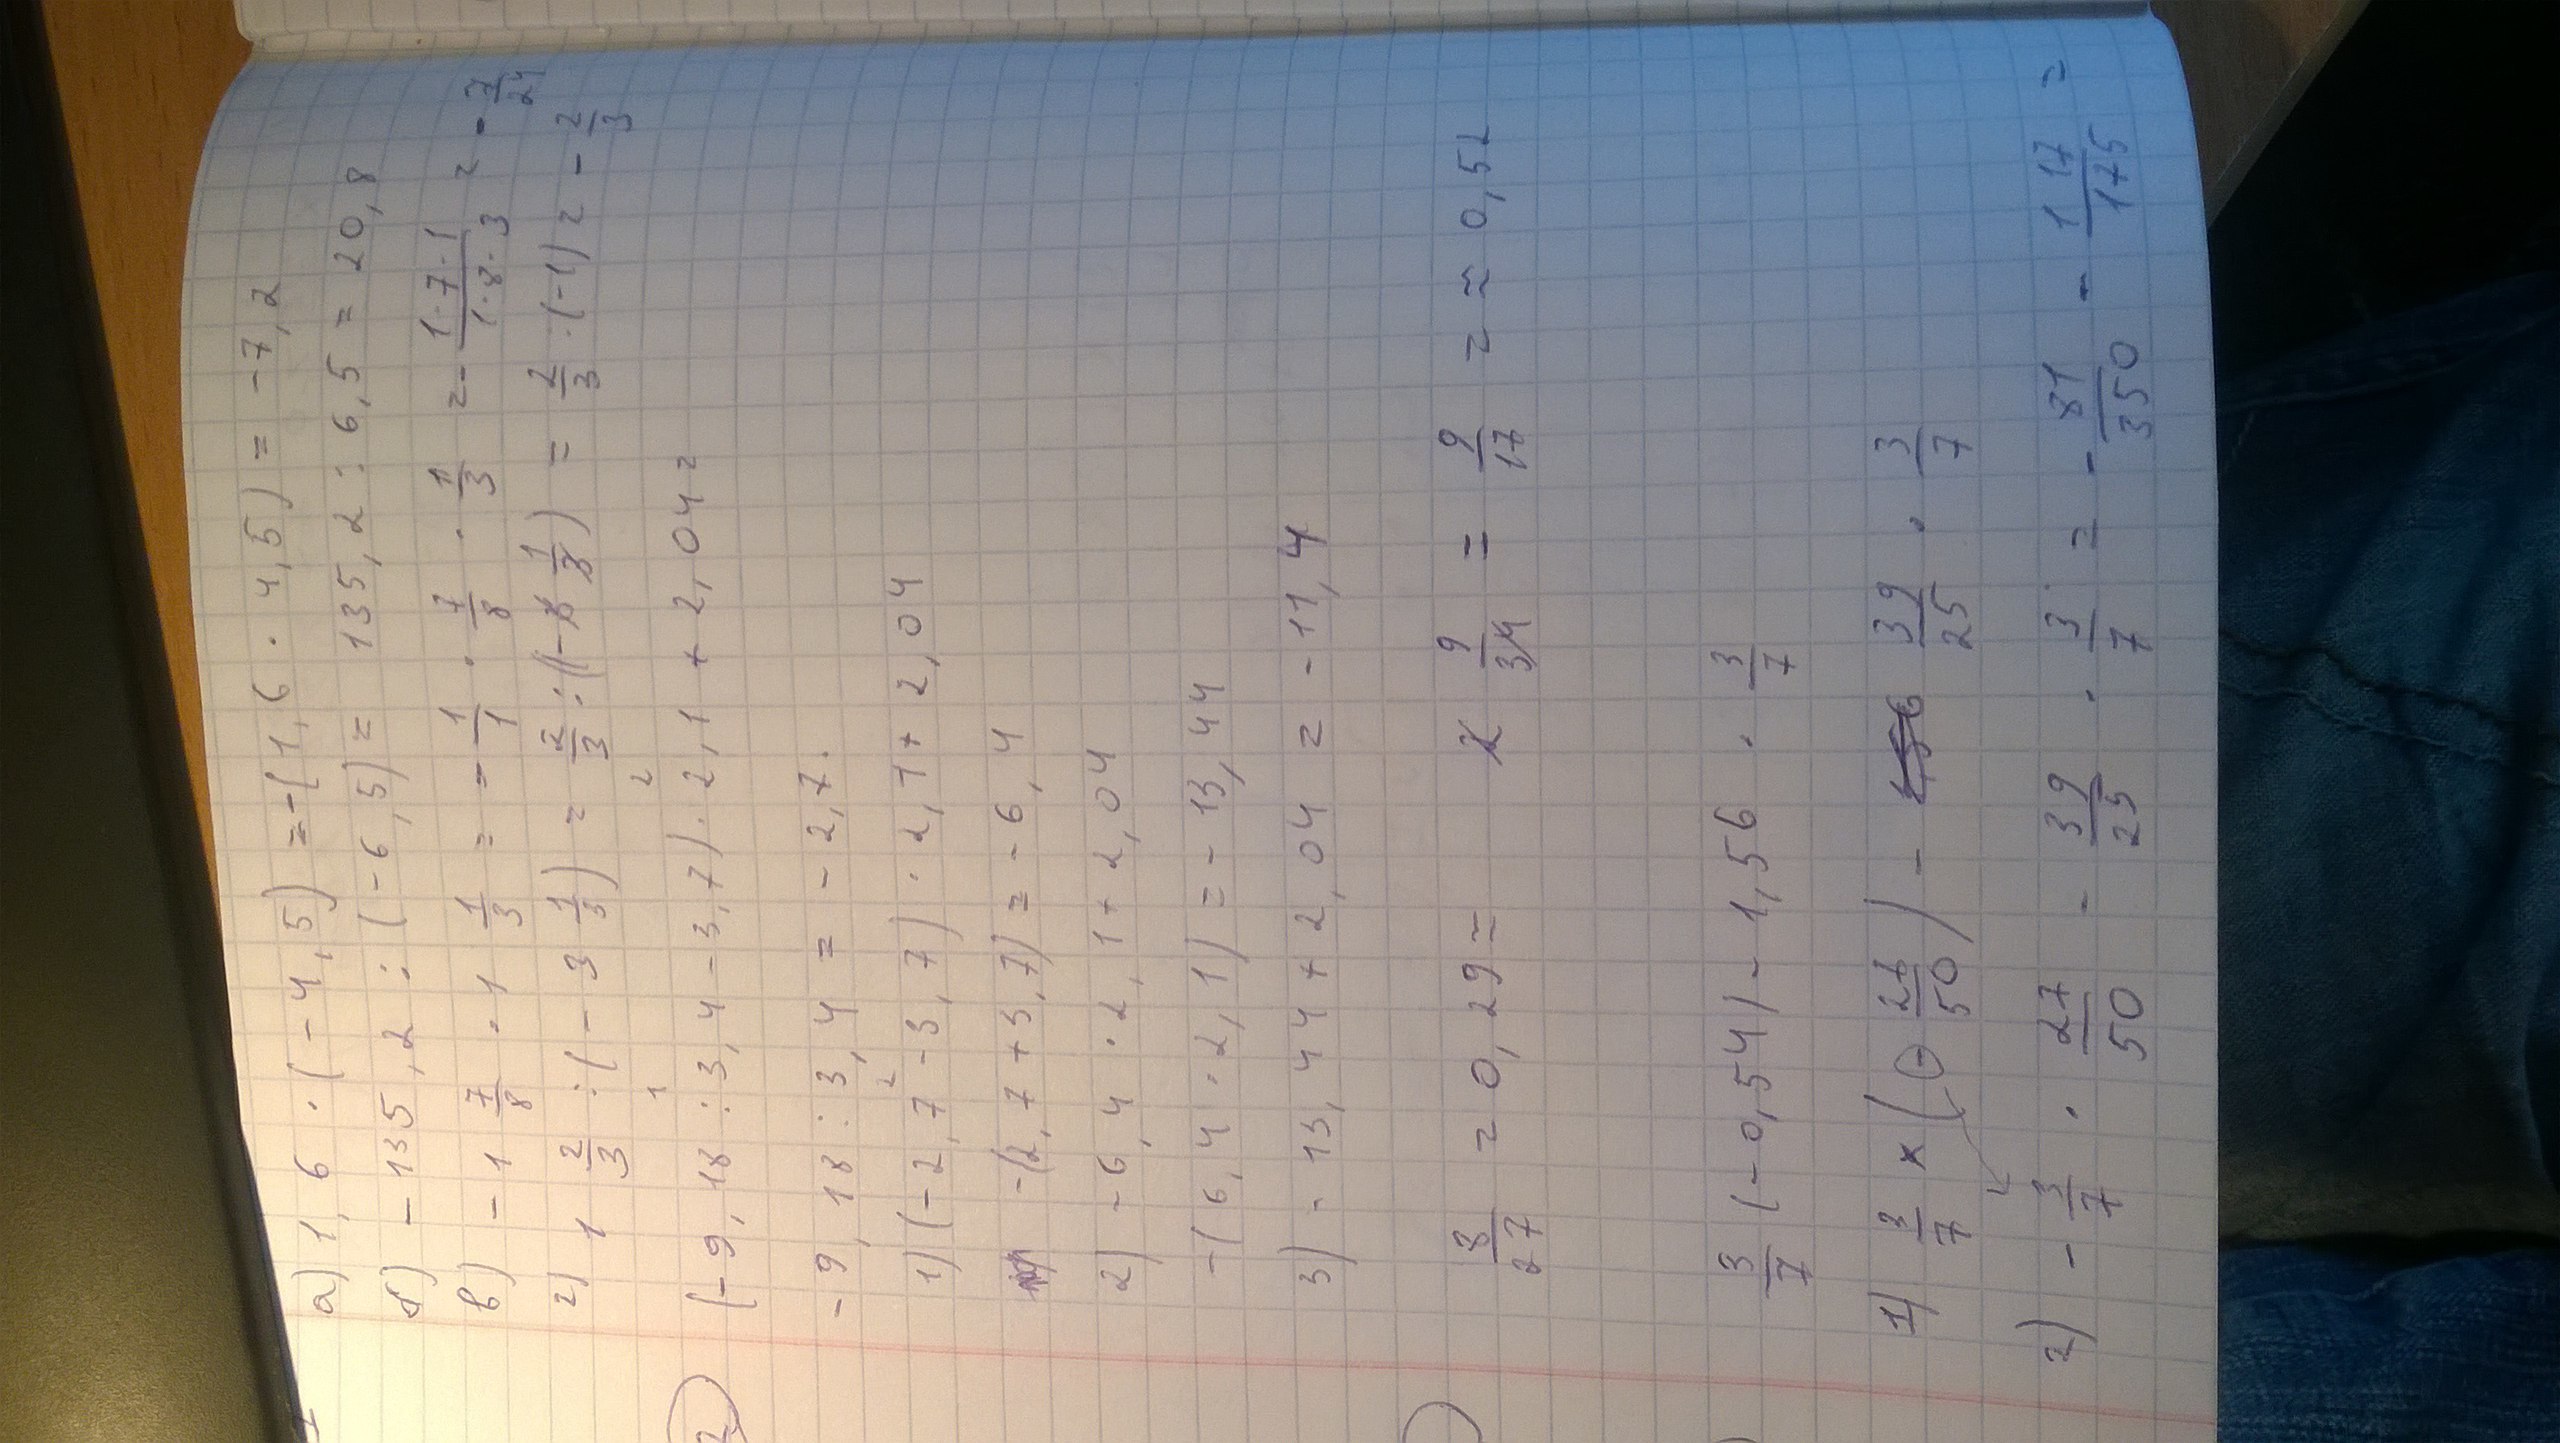 1
а) 1,6 · (-4,5) = -(1,6 · 4,5) = -7,2
б) -135,2 : (-6,5) = 135,2 : 6,5 = 20,8
в) -1 7/8 · 1 1/3 = -1/1 · 7/8 · 1/3 = -1·7·1/1·8·3 = -7/24
г) 1 2/3 : (-3 1/3) = 2/3 : (- 1/3) = 2/3 : (-1) = -2/3
2) (-9,18 : 3,4 - 3,7) · 2,1 + 2,04 =
-9,18 : 3,4 = -2,7.
1) (-2,7 - 3,7) · 2,1 + 2,04
-(2,7 + 3,7) = -6,4
2) -6,4 · 2,1 + 2,04
-(6,4 · 2,1) = -13,44
3) -13,44 + 2,04 = -11,4
8/27 = 0,29 = 2 9/34 = 9/17 = ≈ 0,52
3/7 (-0,54) - 1,56 · 3/7
1) 3/7 × (- 27/50) - 39/25 · 3/7
2) -3/7 · 27/50 - 39/25 · 3/7 = -81/350 - 117/175 =